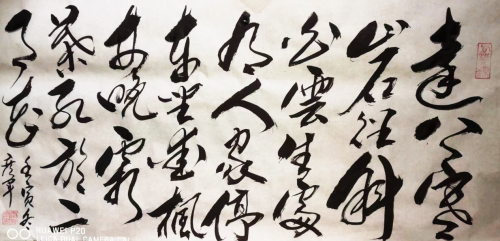 遠上寒
山石徑斜
白雲生處
有人家停
車坐愛楓
林晚霜
葉紅於二
月花
壬寅
HUAWEI P20